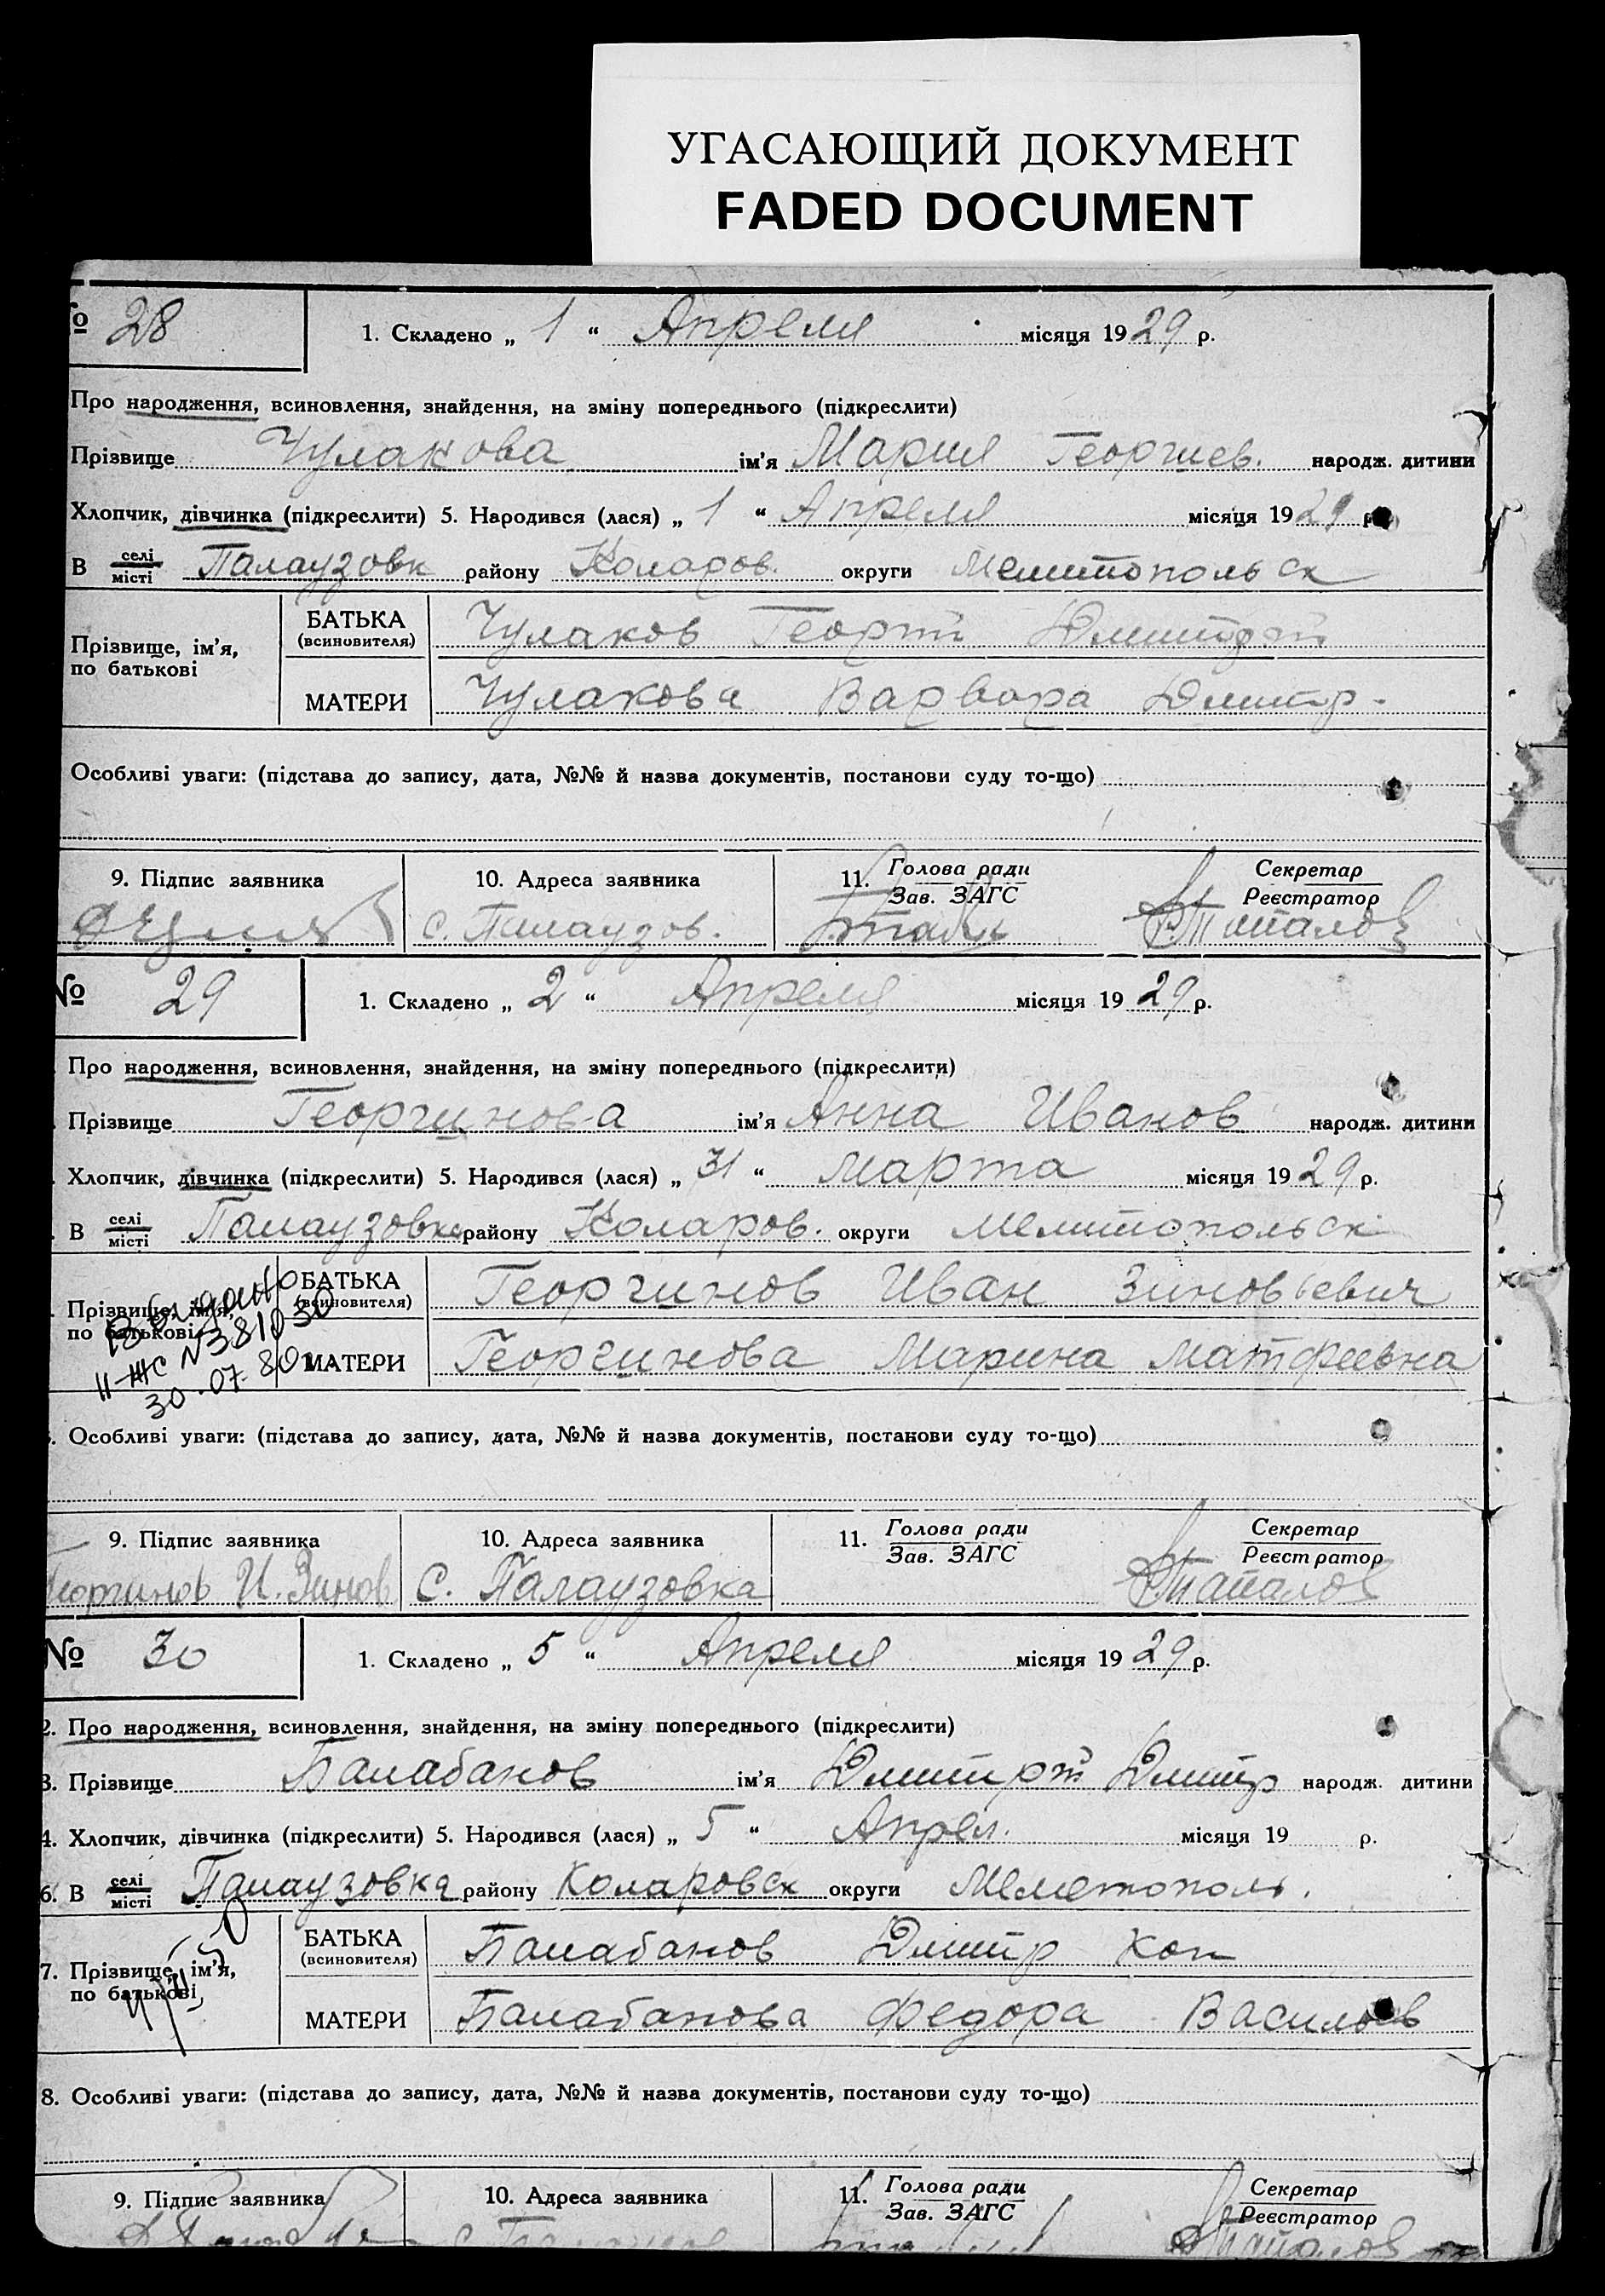 УГАСАЮЩИЙ ДОКУМЕНТ
FADED DOCUMENT
№ 28 1. Складено „ 1 “ Апреля місяця 1929 р.
Про народження, всиновлення, знайдення, на зміну попереднього (підкреслити)
Прізвище Чулакова ім'я Мария Георгиев. народж. дитини
Хлопчик, дівчинка (підкреслити) 5. Народився (лася) „ 1 “ Апреля місяця 1929 р.
В селі/місті Палаузовк району Коларов. округи Мелитопольск
Прізвище, ім'я, по батькові БАТЬКА (всиновителя) Чулаков Георги Дмитри
МАТЕРИ Чулакова Варвара Дмитр.
Особливі уваги: (підстава до запису, дата, №№ й назва документів, постанови суду то-що)
9. Підпис заявника 10. Адреса заявника 11. Голова ради Секретар
Зав. ЗАГС Реєстратор
с. Палаузов.
№ 29 1. Складено „ 2 “ Апреля місяця 1929 р.
Про народження, всиновлення, знайдення, на зміну попереднього (підкреслити)
Прізвище Георгинова ім'я Анна Иванов народж. дитини
Хлопчик, дівчинка (підкреслити) 5. Народився (лася) „ 31 “ Марта місяця 1929 р.
В селі/місті Палаузовка району Коларов. округи Мелитопольск
Прізвище, ім'я, по батькові БАТЬКА (всиновителя) Георгинов Иван Зиновьевич
МАТЕРИ Георгинова Марина Матфеевна
II-ЖС N381030
30.07.80
Особливі уваги: (підстава до запису, дата, №№ й назва документів, постанови суду то-що)
9. Підпис заявника 10. Адреса заявника 11. Голова ради Секретар
Зав. ЗАГС Реєстратор
Георгинов И. Зинов с. Палаузовка
№ 30 1. Складено „ 5 “ Апреля місяця 1929 р.
2. Про народження, всиновлення, знайдення, на зміну попереднього (підкреслити)
3. Прізвище Балабанов ім'я Дмитри Дмитр народж. дитини
4. Хлопчик, дівчинка (підкреслити) 5. Народився (лася) „ 5 “ Апрел. місяця 19 р.
6. В селі/місті Палаузовка району Коларовск округи Мелетополь.
7. Прізвище, ім'я, по батькові БАТЬКА (всиновителя) Балабанов Дмитр Кон
МАТЕРИ Балабанова Федора Васильев
8. Особливі уваги: (підстава до запису, дата, №№ й назва документів, постанови суду то-що)
9. Підпис заявника 10. Адреса заявника 11. Голова ради Секретар
Зав. ЗАГС Реєстратор